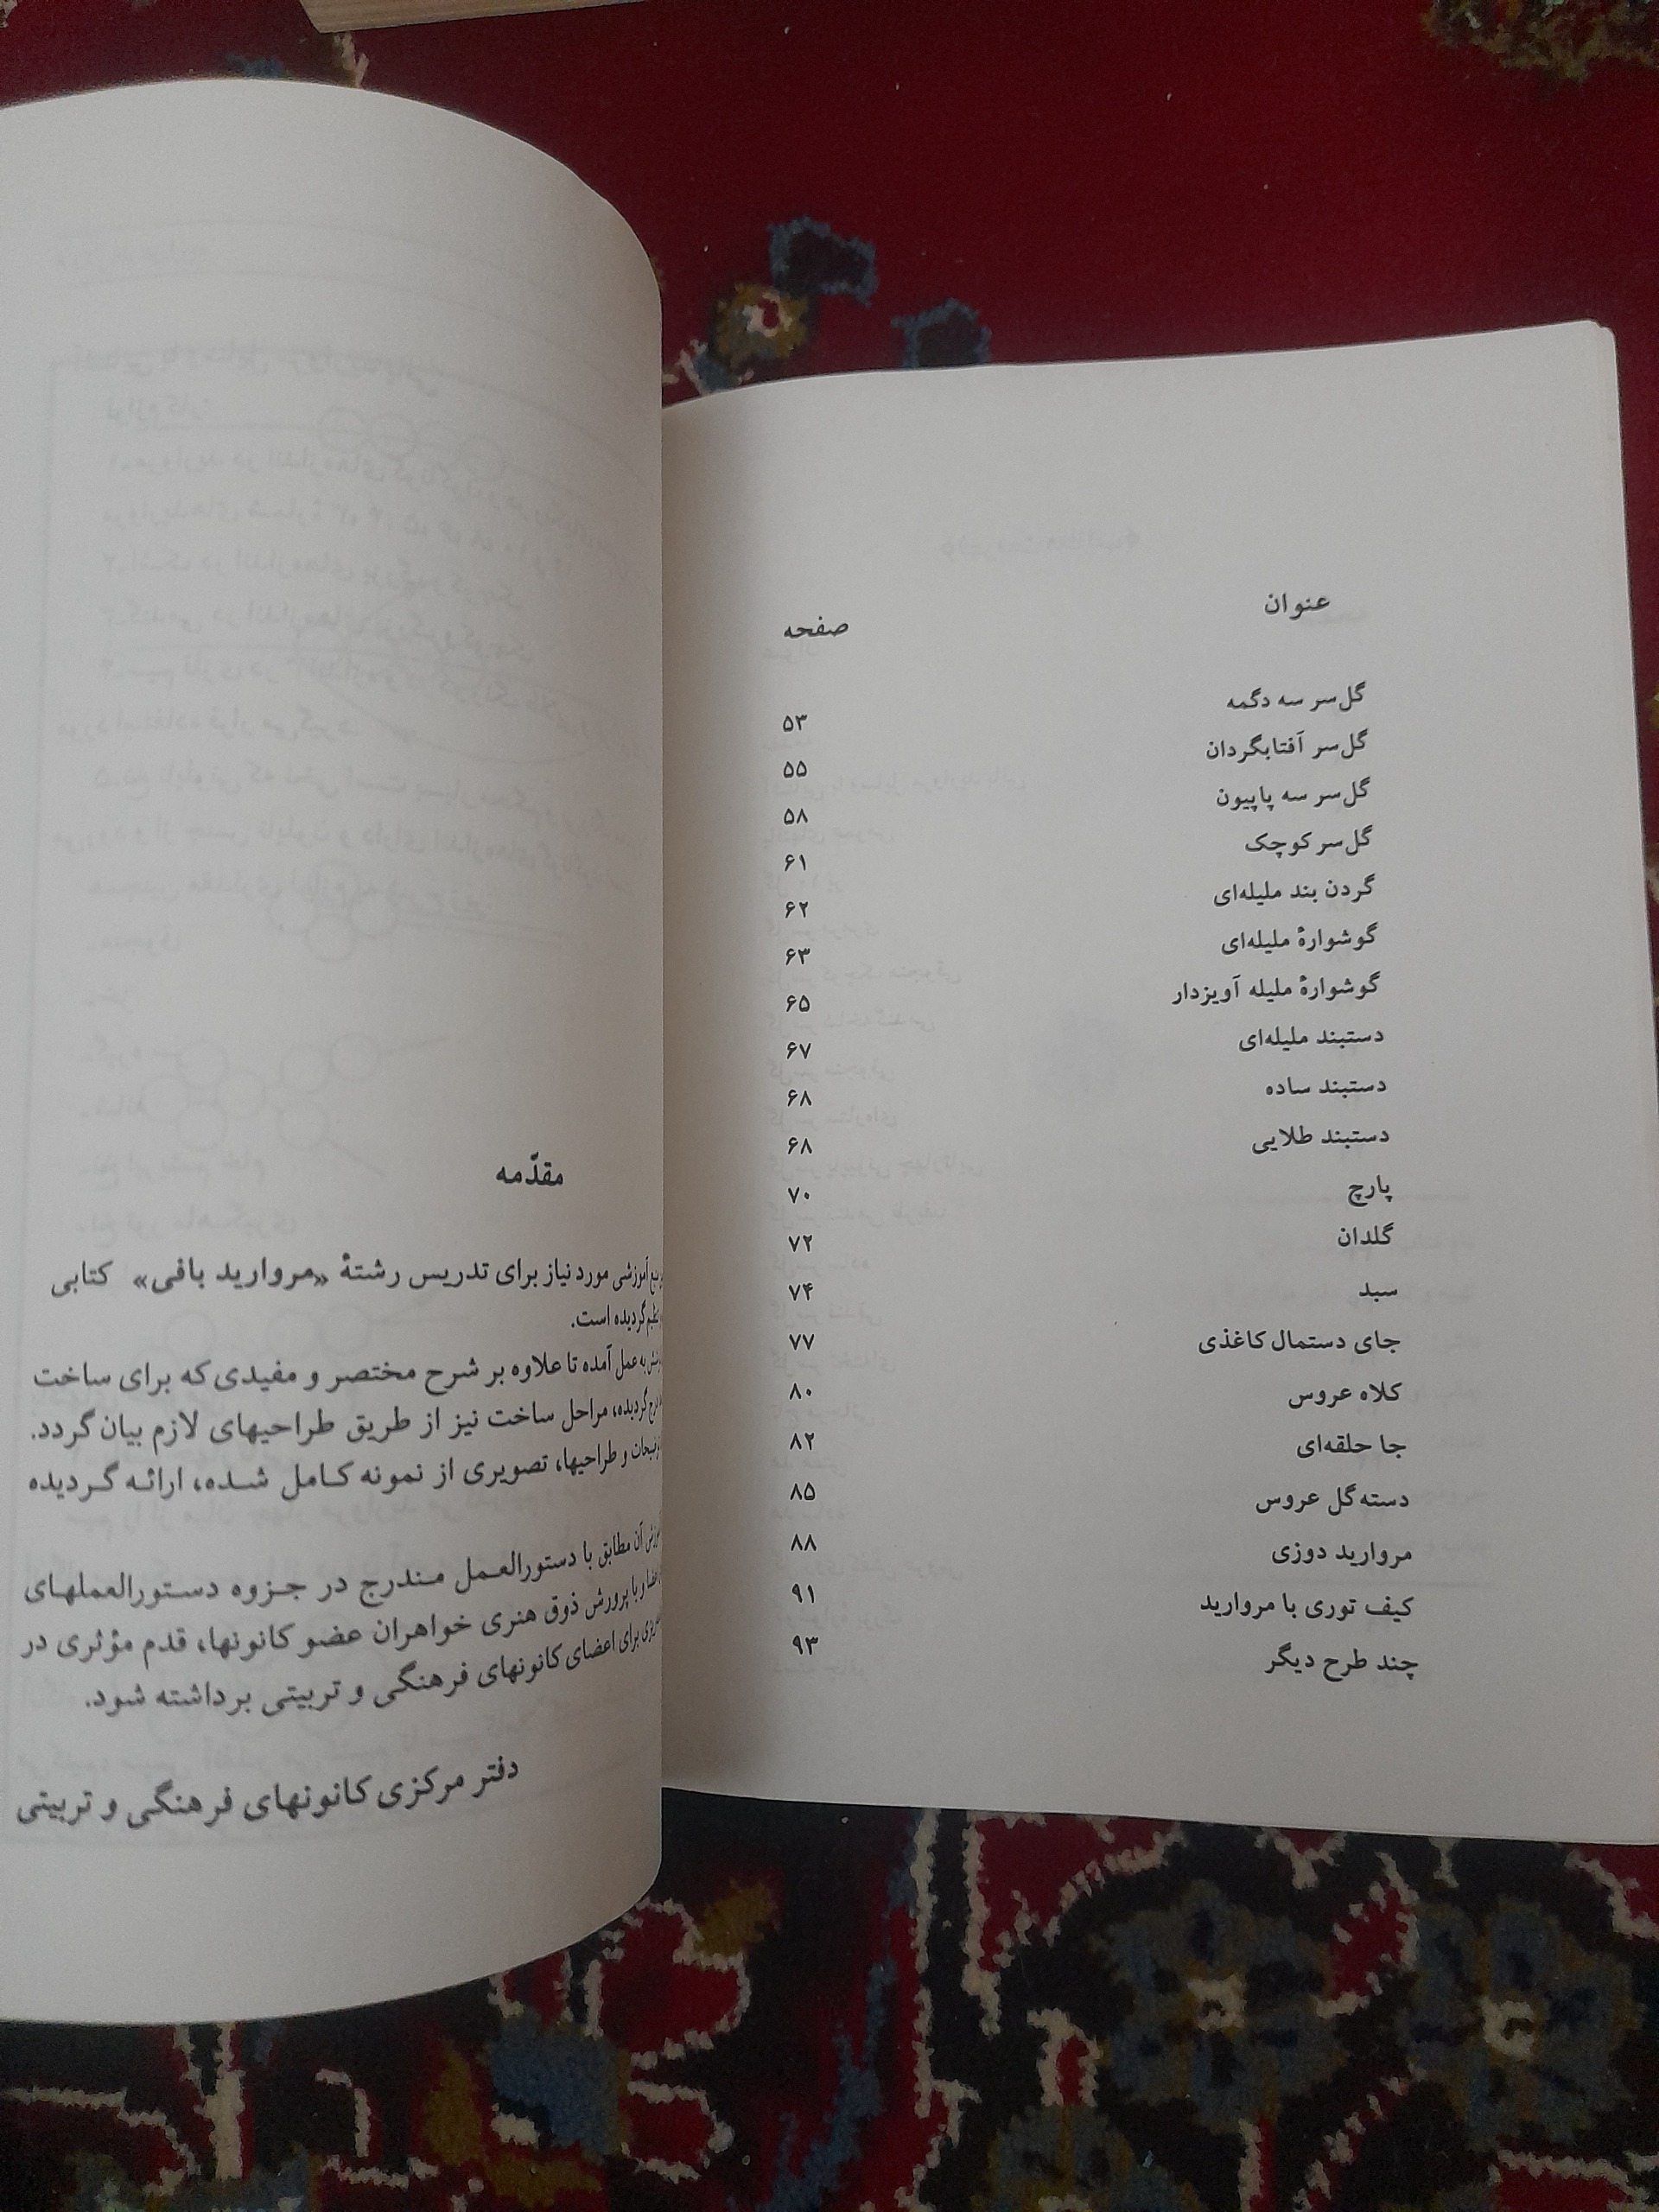 عنوان صفحه
گل‌سر سه دگمه ۵۳
گل‌سر آفتابگردان ۵۵
گل‌سر سه پاپیون ۵۸
گل‌سر کوچک ۶۱
گردن بند ملیله‌ای ۶۲
گوشوارهٔ ملیله‌ای ۶۳
گوشوارهٔ ملیله آویزدار ۶۵
دستبند ملیله‌ای ۶۷
دستبند ساده ۶۸
دستبند طلایی ۶۸
پارچ ۷۰
گلدان ۷۲
سبد ۷۴
جای دستمال کاغذی ۷۷
کلاه عروس ۸۰
جا حلقه‌ای ۸۲
دسته گل عروس ۸۵
مروارید دوزی ۸۸
کیف توری با مروارید ۹۱
چند طرح دیگر ۹۳
مقدّمه
آموزشی مورد نیاز برای تدریس رشتهٔ «مروارید بافی» کتابی
گردیده است.
به عمل آمده تا علاوه بر شرح مختصر و مفیدی که برای ساخت
گردیده، مراحل ساخت نیز از طریق طراحیهای لازم بیان گردد.
و طراحیها، تصویری از نمونه کامل شده، ارائه گردیده
آن مطابق با دستورالعمل مندرج در جزوه دستورالعملهای
با پرورش ذوق هنری خواهران عضو کانونها، قدم مؤثری در
برای اعضای کانونهای فرهنگی و تربیتی برداشته شود.
دفتر مرکزی کانونهای فرهنگی و تربیتی